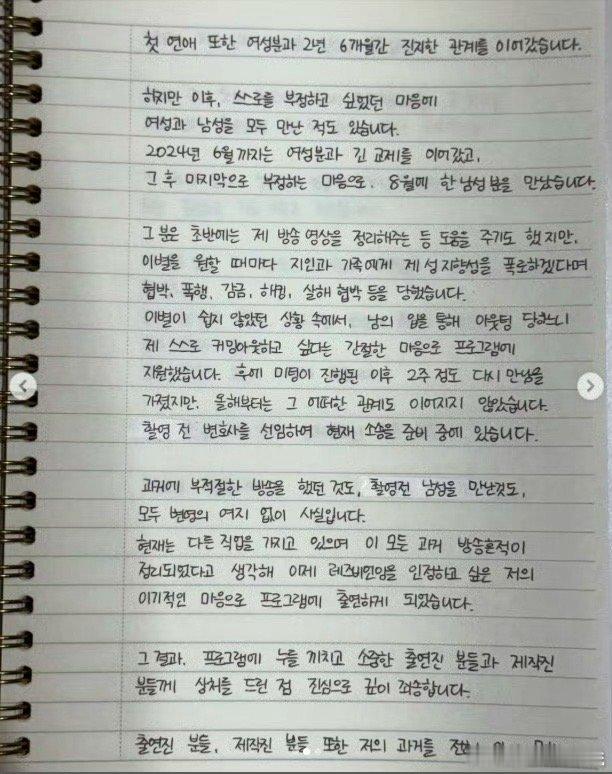 첫 연애 또한 여성분과 2년 6개월간 진지한 관계를 이어갔습니다.
하지만 이후, 스스로를 부정하고 싶었던 마음에
여성과 남성을 모두 만난 적도 있습니다.
2024년 6월까지는 여성분과 긴 교제를 이어갔고,
그 후 마지막으로 부정하는 마음으로, 8월에 한 남성분을 만났습니다.
그 분은 초반에는 제 방송 영상을 정리해주는 등 도움을 주기도 했지만,
이별을 원할 때마다 지인과 가족에게 제 성 지향성을 폭로하겠다며
협박, 폭행, 감금, 해킹, 살해 협박 등을 당했습니다.
이별이 쉽지 않았던 상황 속에서, 남의 입을 통해 아웃팅 당하느니
제 스스로 커밍아웃하고 싶다는 간절한 마음으로 프로그램에
지원했습니다. 후에 미팅이 진행된 이후 2주 정도 다시 만남을
가졌지만, 올해부터는 그 어떠한 관계도 이어지지 않았습니다.
촬영 전 변호사를 선임하여 현재 소송을 준비 중에 있습니다.
과거에 부적절한 방송을 했던 것도, 촬영전 남성을 만난것도,
모두 변명의 여지 없이 사실입니다.
현재는 다른 직업을 가지고 있으며 이 모든 과거 방송흔적이
정리되었다고 생각해 이제 레즈비언임을 인정하고 싶은 저의
이기적인 마음으로 프로그램에 출연하게 되었습니다.
그 결과, 프로그램에 누를 끼치고 소중한 출연진 분들과 제작진
분들께 상처를 드린 점 진심으로 깊이 죄송합니다.
출연진 분들, 제작진 분들 또한 저의 과거를